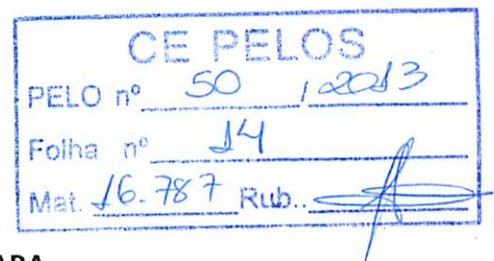 CE PELOS
PELO nº 50 / 2013
Folha nº 14
Mat. 16.787 Rub..